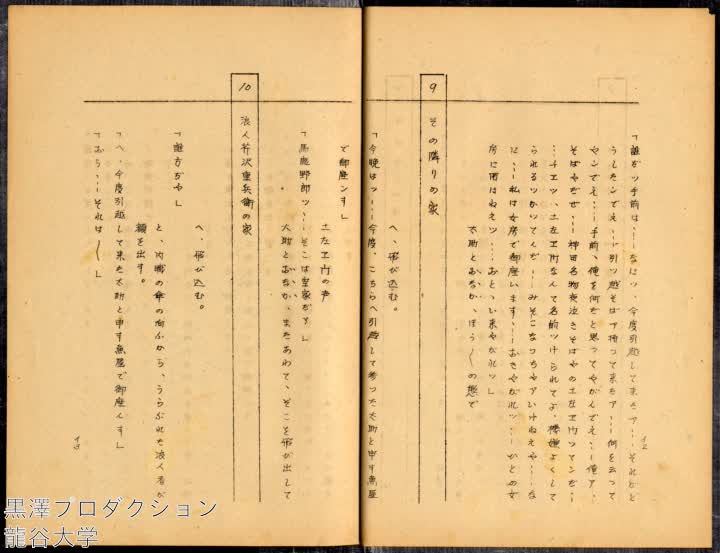 「誰だッ手前は、…なにッ、今度引越して来たア…それがど
うしたンでえ…引ッ越そばア持って来たア…何を云って
やンでえ…手前、俺を何だと思ってやがんでえ…俺ア、
そばやだぜ…神田名物夜泣きそばやの土左ヱ門ってンだ…
…チエッ、土左ヱ門なんて名前つけられてよ、機嫌よくして
られるッかってんだ…みそこなっちゃアいけねえや…な
に…私は女房で御座います…おきやがれッ…ひとの女
房に用はねえッ…おとゝい来やがれッ」
太助とおなか、ほう〱の態で
9 その隣りの家
へ、飛び込む。
「今晩はッ…今度、こちらへ引越して参った太助と申す魚屋
で御座ンす」
土左ヱ門の声
「馬鹿野郎ッ…そこは空家だア」
太助とおなか、またあわてゝ、そこを飛び出して
12
10 浪人芹沢重兵衛の家
へ、飛び込む。
「誰方ぢや」
と、内職の傘の向ふから、うらぶれた浪人者が
顔を出す。
「へ、今度引越して来た太助と申す魚屋で御座んす」
「おう…それは〱」
13
黒澤プロダクション
龍谷大学